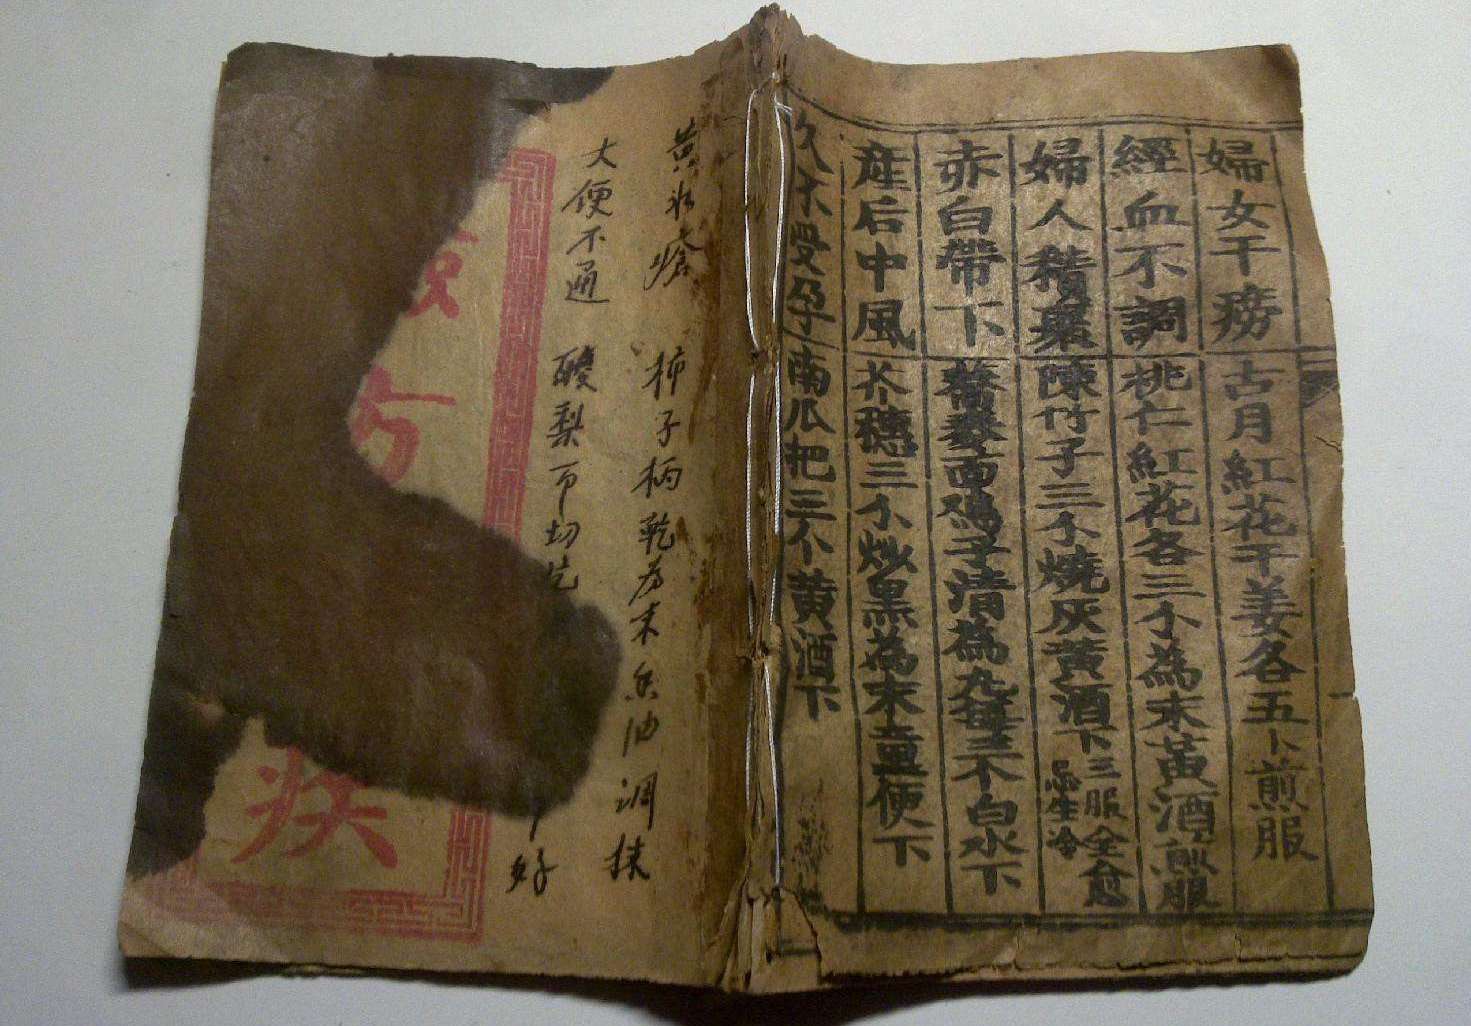 婦女干痨 古月紅花干姜各五卜煎服
經血不調 桃仁紅花各三个為末黄酒煎服
婦人積聚 陳竹子三个燒灰黄酒下三服全愈 忌生冷
赤白帶下 蕎麥面鸡子清為丸每三不白水下
産后中風 芥穗三个炒黑為末童便下
久不受孕 南瓜把三个黄酒下
黄水瘡 柿子柄乾为末 油调抹
大便不通 酸梨 切 好
方